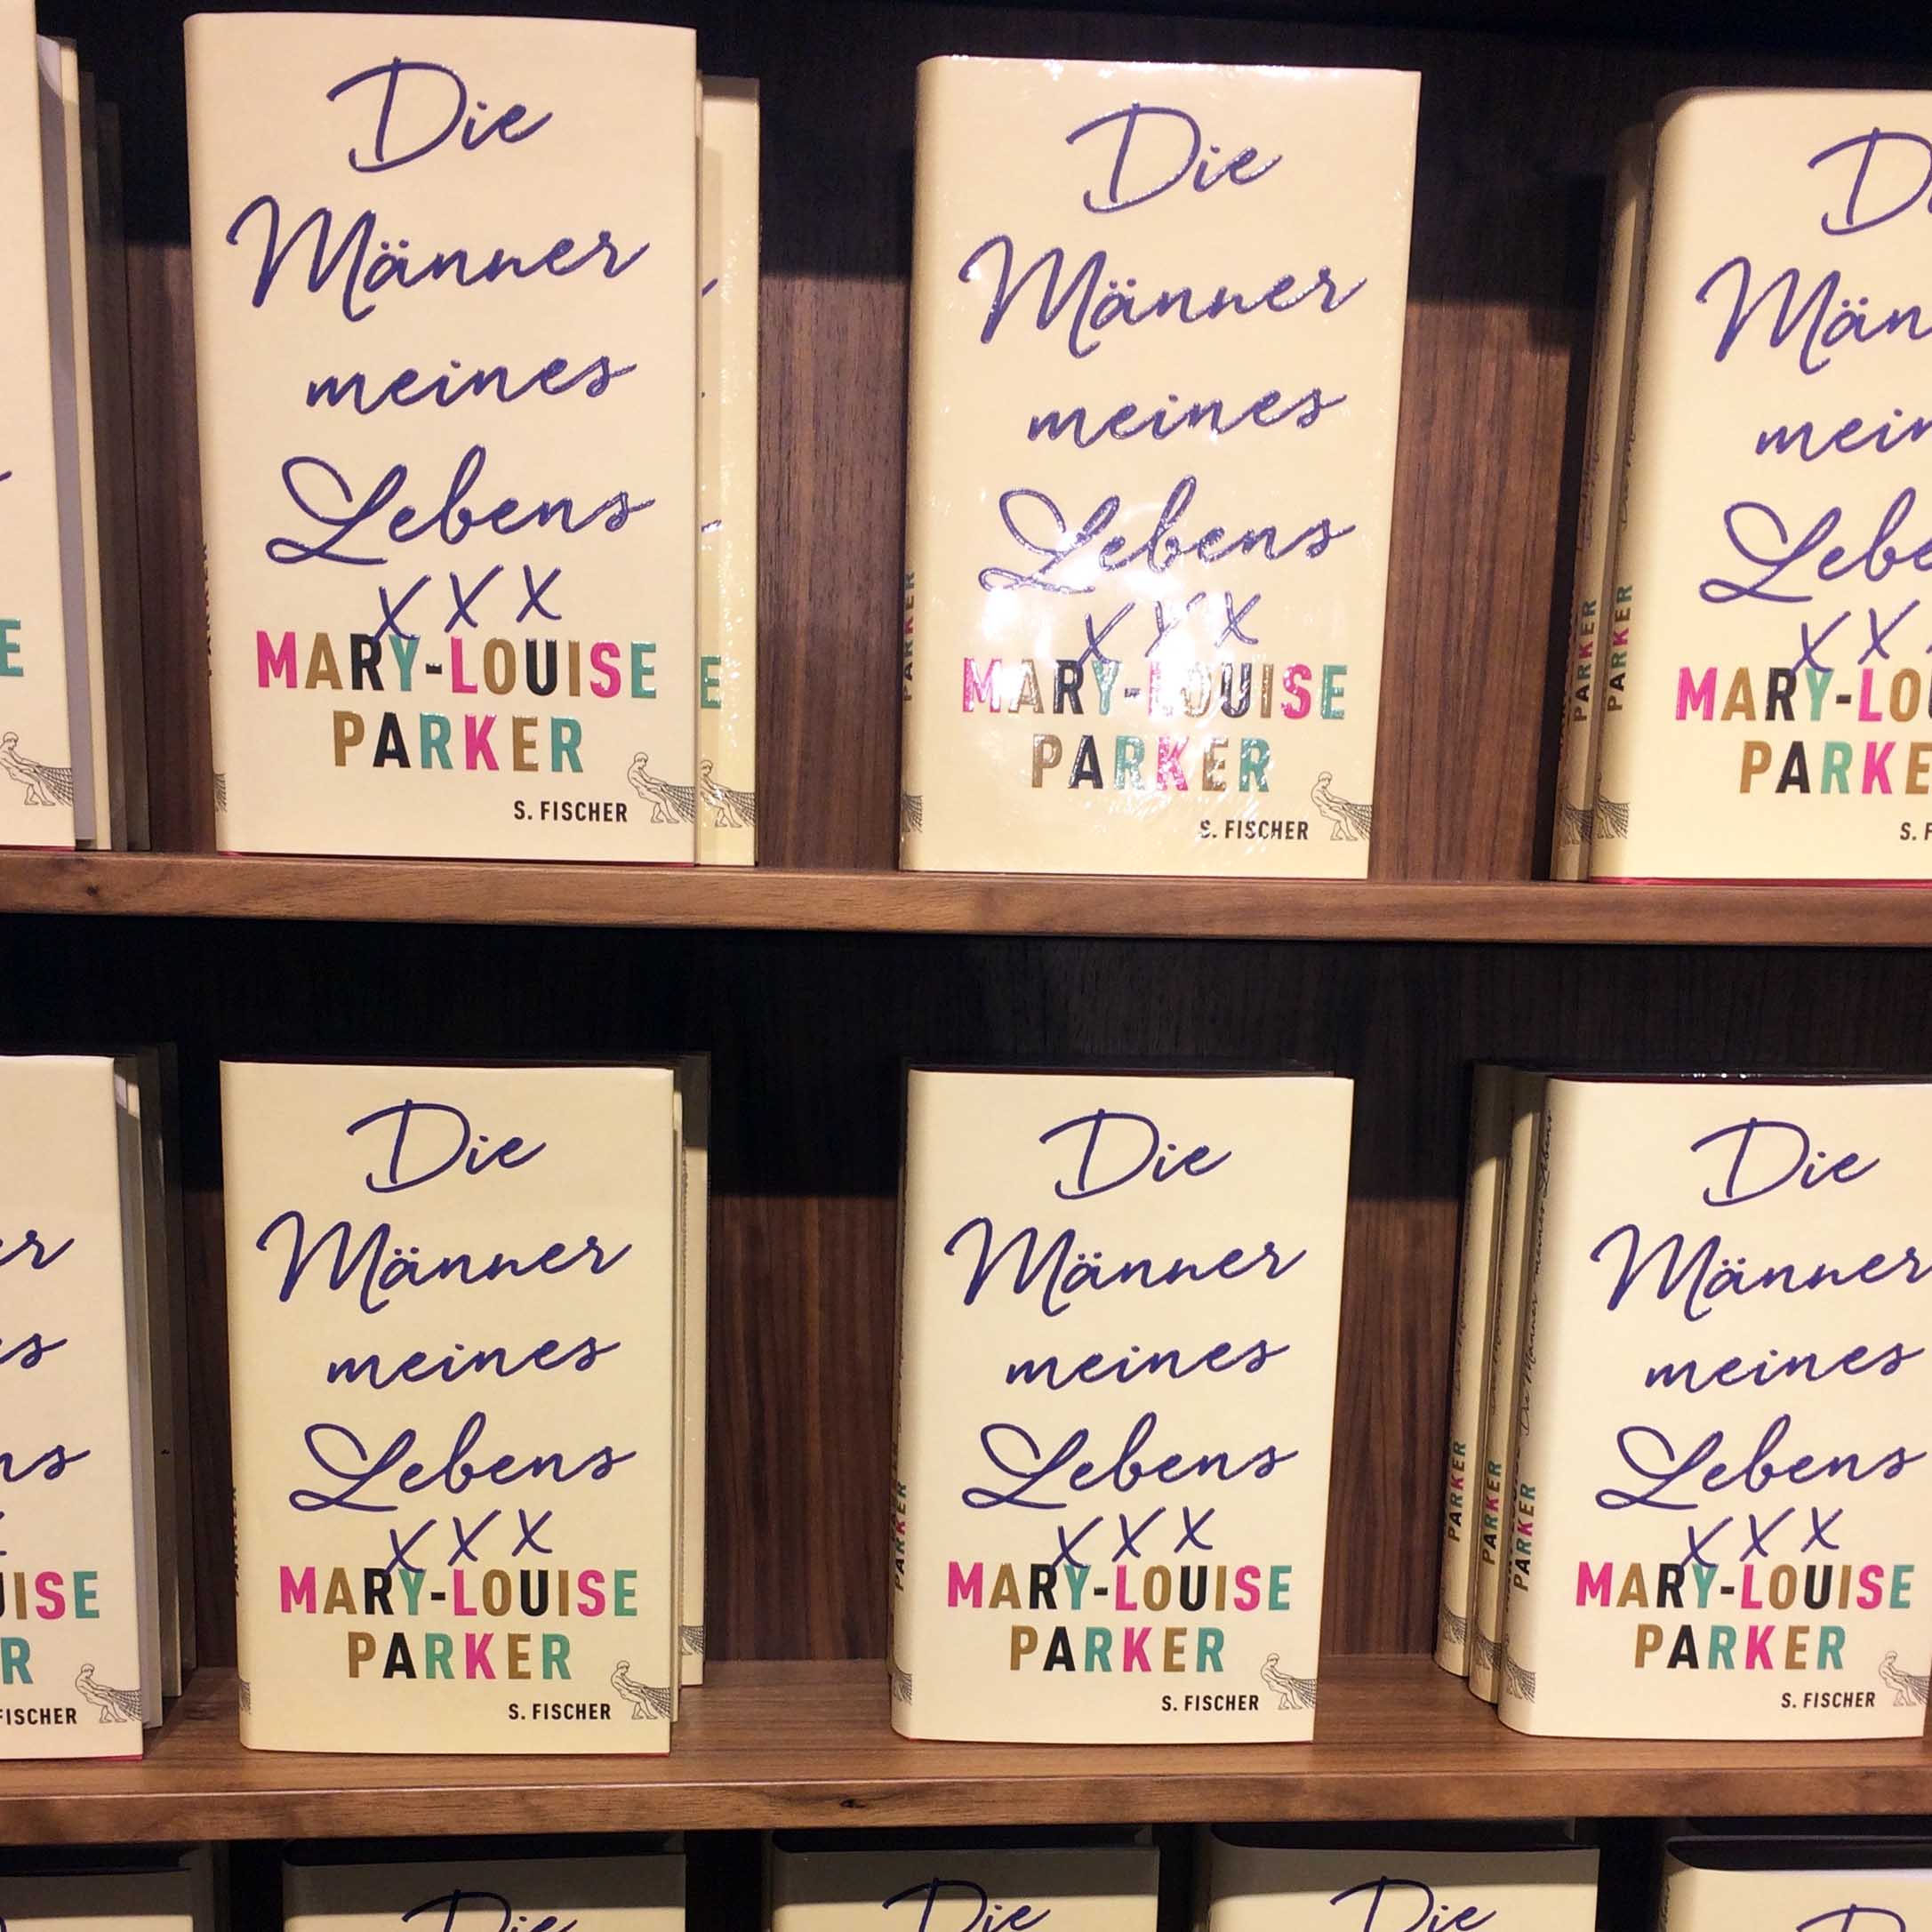 Die
Männer
meines
Lebens
xxx
MARY-LOUISE
PARKER
S. FISCHER
E
Die
Männer
meines
Lebens
xxx
MARY-LOUISE
PARKER
S. FISCHER
PARKER
PARKER
PARKER
Män
MARY-LOU
E
Die
Männer
meines
Lebens
xxx
MARY-LOUISE
PARKER
S. FISCHER
PARKER
Die
Männer
meines
Lebens
xxx
MARY-LOUISE
PARKER
S. FISCHER
PARKER
PARKER
PARKER
PARKER
Die Männer meines Lebens
Die
Männer
meines
Lebens
xxx
MARY-LOUISE
PARKER
S. FISCHER
UISE
R
FISCHER
Die
Die
Die